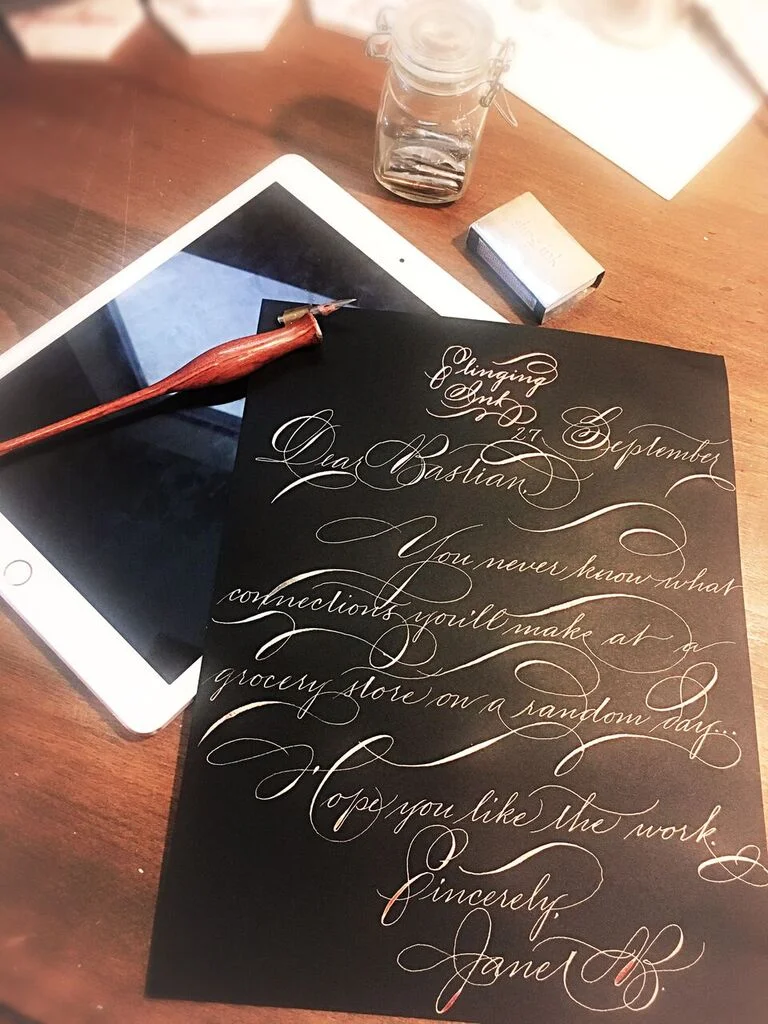 Clinging
Ink
27 September
Dear Bastian,
You never know what
connections you'll make at a
grocery store on a random day...
Hope you like the work.
Sincerely,
Janet B.